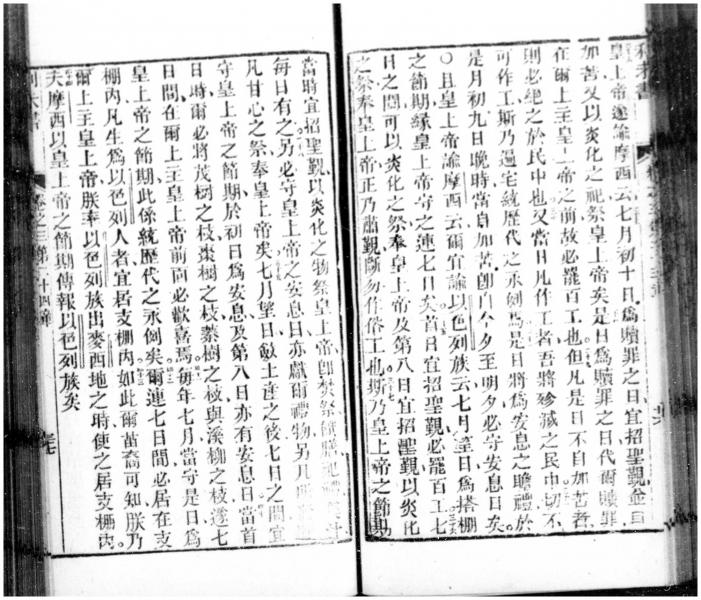 利未書
皇上帝遂諭摩西云七月初十日為贖罪之日宜招聖覲
加苦又以炎化之祀祭皇上帝矣是日為贖罪之日代爾贖罪
在爾上主皇上帝之前故必罷百工也但凡是日不自加苦者
則必絕之於民中也又當日凡作工者吾將殄滅之民中切不
可作工斯乃遍宅統歷代之永例焉是日將為安息之瞻禮於
是月初九日晚時當自加苦即自今夕至明夕必守安息日矣
〇且皇上帝諭摩西云爾宜諭以色列族云七月望日為搭棚
之節期緣皇上帝守之連七日矣首日宜招聖覲必罷百工七
日之間可以炎化之祭奉皇上帝及第八日宜招聖覲以炎化
之祭奉皇上帝正乃肅覲斷勿作俗工也斯乃皇上帝之節期
當時宜招聖覲以炎化之物祭皇上帝即焚祭饌膳祀禮
每日有之另必守皇上帝之安息日亦獻爾禮物另凡
凡甘心之祭奉皇上帝矣七月望日斂土產之後七日之間宜
守皇上帝之節期於初日為安息及第八日亦有安息日當首
日時爾必將茂樹之枝棗樹之枝葇樹之枝與溪柳之枝遂七
日間在爾上主皇上帝前而必歡喜焉每年七月當守是日為
皇上帝之節期此係統歷代之永例矣爾連七日間必居在支
棚內凡生為以色列人者宜居支棚內如此爾苗裔可知朕乃
爾上主皇上帝朕率以色列族出麥西地之時使之居支棚內
夫摩西以皇上帝之節期傳報以色列族矣
利未書 卷之三第二十四章